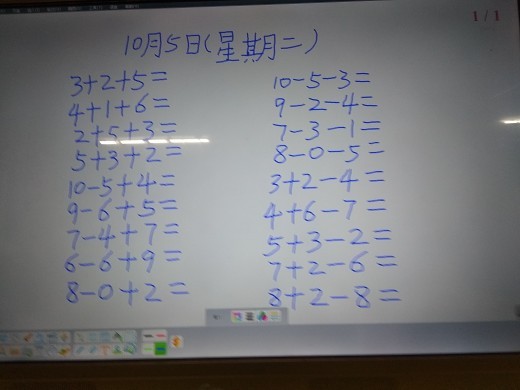 1/1
10月5日(星期二)
3+2+5=
4+1+6=
2+5+3=
5+3+2=
10-5+4=
9-6+5=
7-4+7=
6-6+9=
8-0+2=
10-5-3=
9-2-4=
7-3-1=
8-0-5=
3+2-4=
4+6-7=
5+3-2=
7+2-6=
8+2-8=